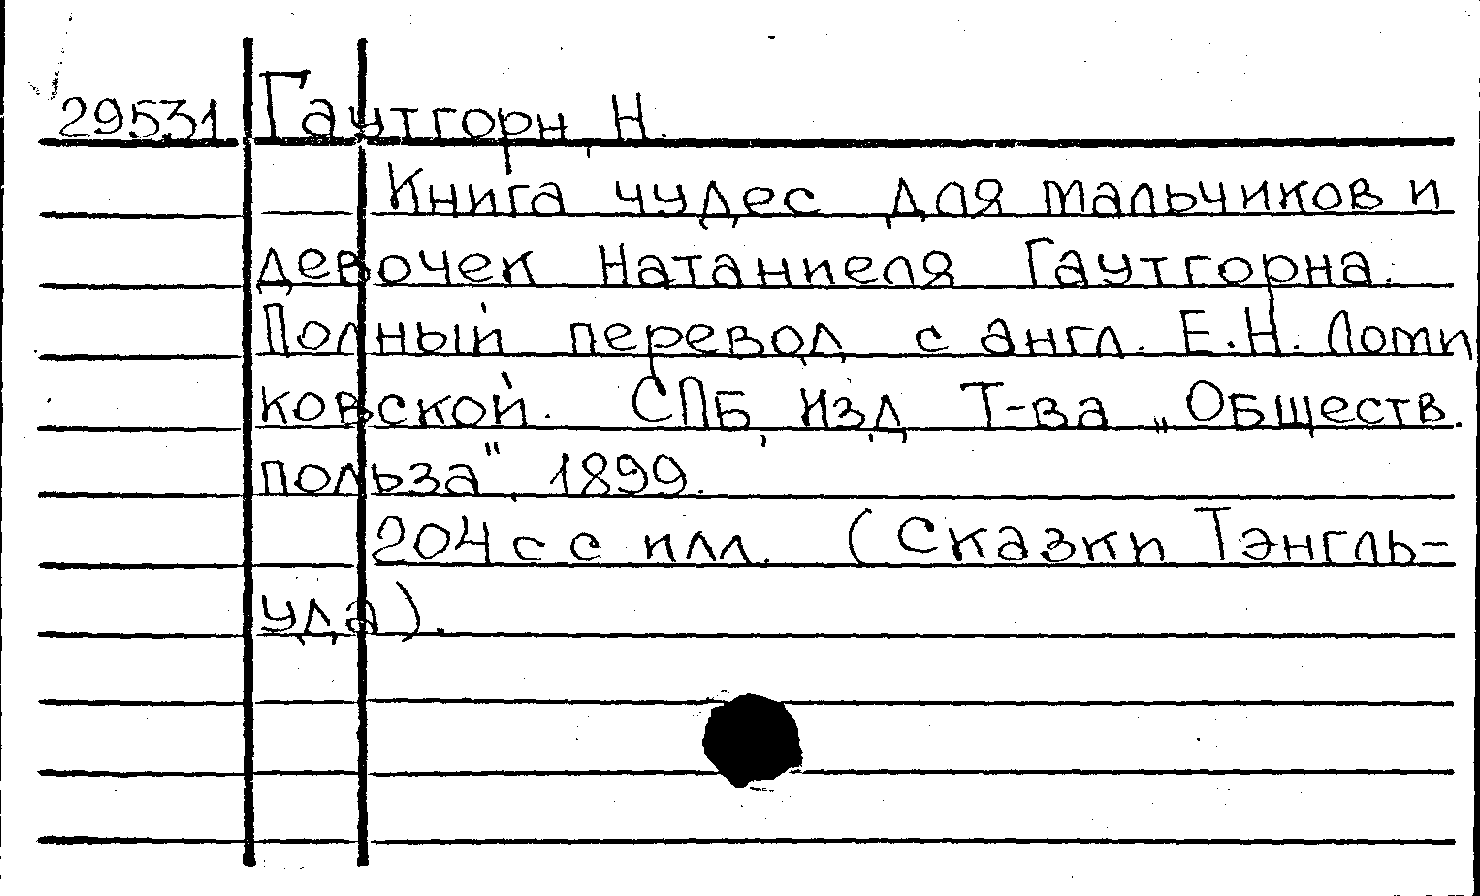 29531 Гаутгорн, Н.
Книга чудес для мальчиков и
девочек Натаниеля Гаутгорна.
Полный перевод с англ. Е.Н. Ломи
ковской. СПБ, Изд. Т-ва „Обществ.
польза", 1899.
204 с с илл. (Сказки Тэнгль-
уда).